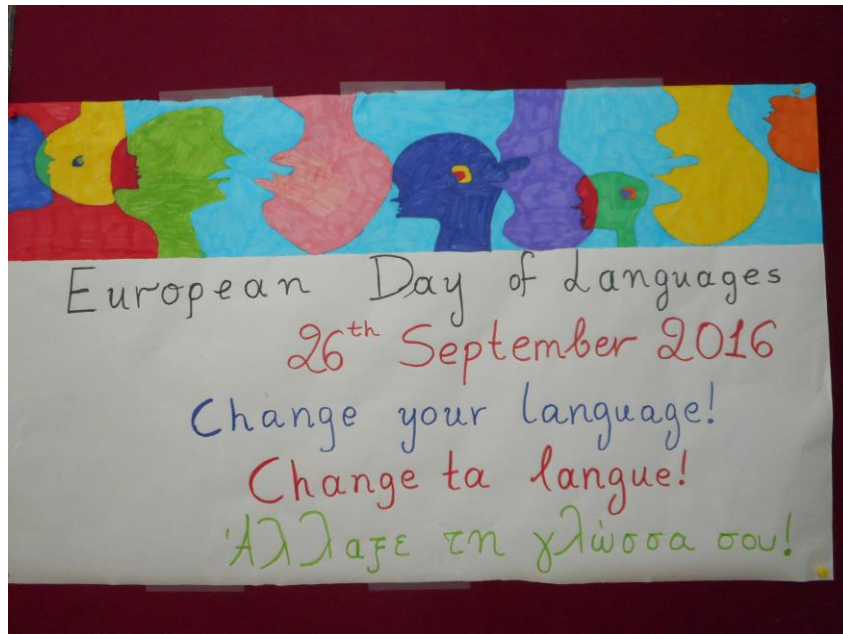 European Day of Languages
26th September 2016
Change your language!
Change ta langue!
Άλλαξε τη γλώσσα σου!